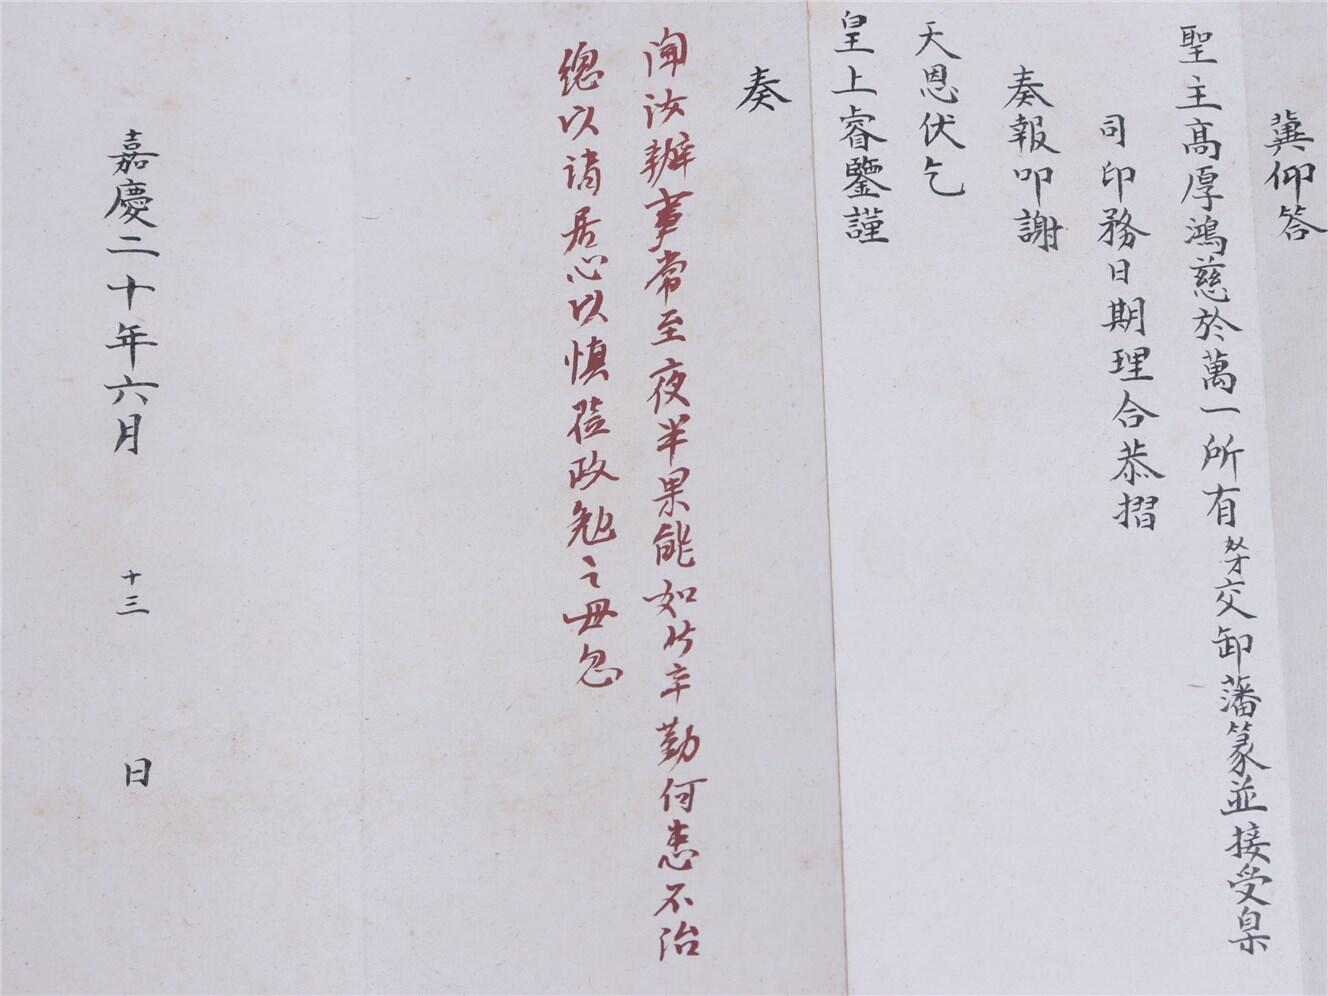 冀仰答
聖主高厚鴻慈於萬一所有奴才交卸藩篆並接受臬
司印務日期理合恭摺
奏報叩謝
天恩伏乞
皇上睿鑒謹
奏
聞汝辦事常至夜半果能如此辛勤何患不治
總以清居心以慎蒞政勉之毋忽
嘉慶二十年六月 十三 日